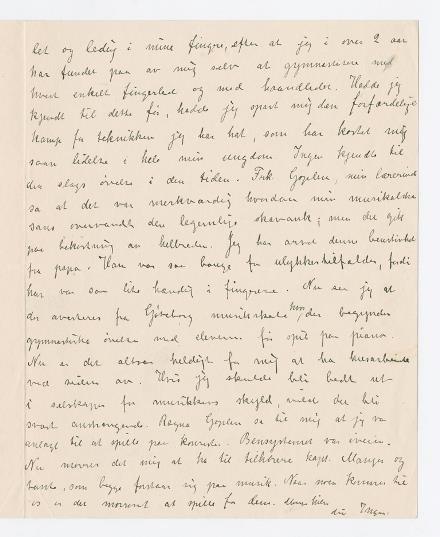 let og ledig i mine fingre, efter at jeg i over 2 aar
har fundet paa av mig selv at gymnasticere med
hvert enkelt fingerled og med haandleder. Hadde jeg
kjendt til dette før, hadde jeg spart mig den forfærdelige
kamp for teknikken jeg har hat, som har kostet mig
saan lidelse i hele min ungdom. Ingen kjendte til
den slags øvelse i den tiden. Frk. Gojelen, min lærerinde
sa at det var merkværdig hvordan min musikalske
sans overvandt den legemlige skavank; men det gik
paa bekostning av helbreden. Jeg har arvet denne
fra papa. Han var saa bange for ulykkestilfælder, fordi
han var som lite hændig i fingrene. Nu ser jeg at
der averteres fra Göteborg musikskole hvor der begynder
gymnastiske øvelser med eleverne før spil paa piano.
Nu er det altsaa heldigt for mig at ha
ved siden av. Hvis jeg skulde bli bedt ut
i selskaper for musikkens skyld, vilde det bli
svært anstrengende. Ragna Gojelen sa til mig at jeg va
anlagt til at spille paa konserter. Bensystemet var iveien.
Nu morrer det mig at ha til tilhørere kapt. Manges og
tante, som begge forstaar sig paa musik. Naar noen kommer til
os er det morsomt at spille for dem.
din Inga.